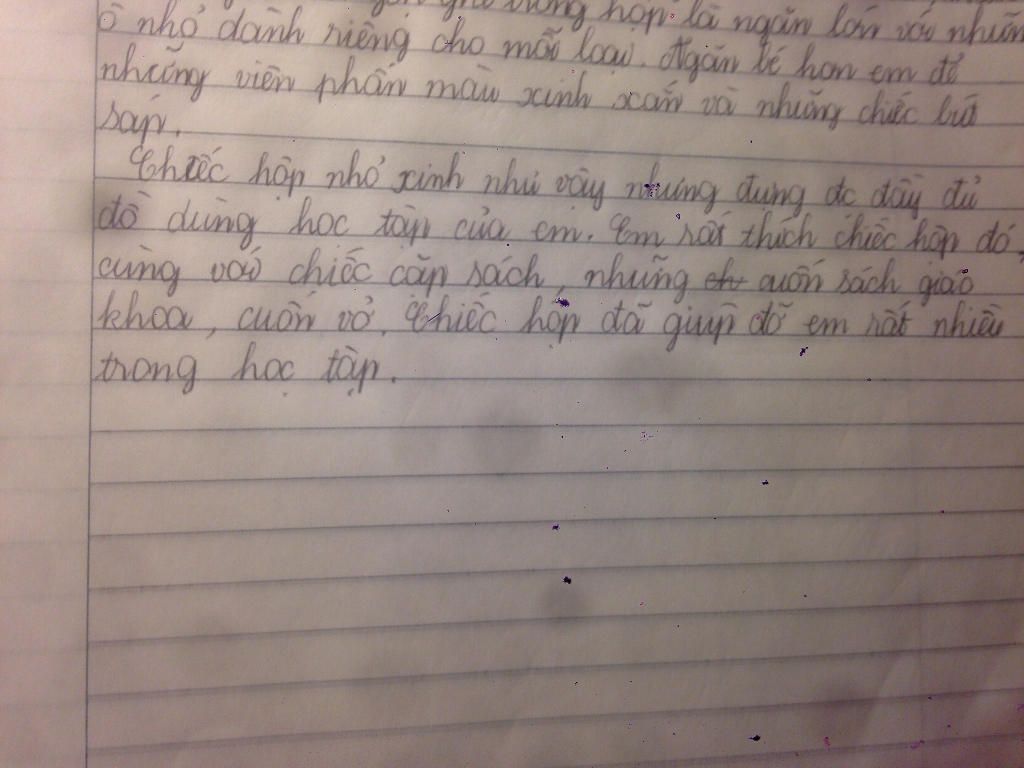 trong hộp là ngăn lớn với những
ô nhỏ dành riêng cho mỗi loại. Ngăn bé hơn em để
những viên phấn màu xinh xắn và những chiếc bút
sáp.
Chiếc hộp nhỏ xinh như vậy nhưng đựng đc đầy đủ
đồ dùng học tập của em. Em rất thích chiếc hộp đó,
cùng với chiếc cặp sách, những ch cuốn sách giáo
khoa, cuốn vở. Chiếc hộp đã giúp đỡ em rất nhiều
trong học tập.